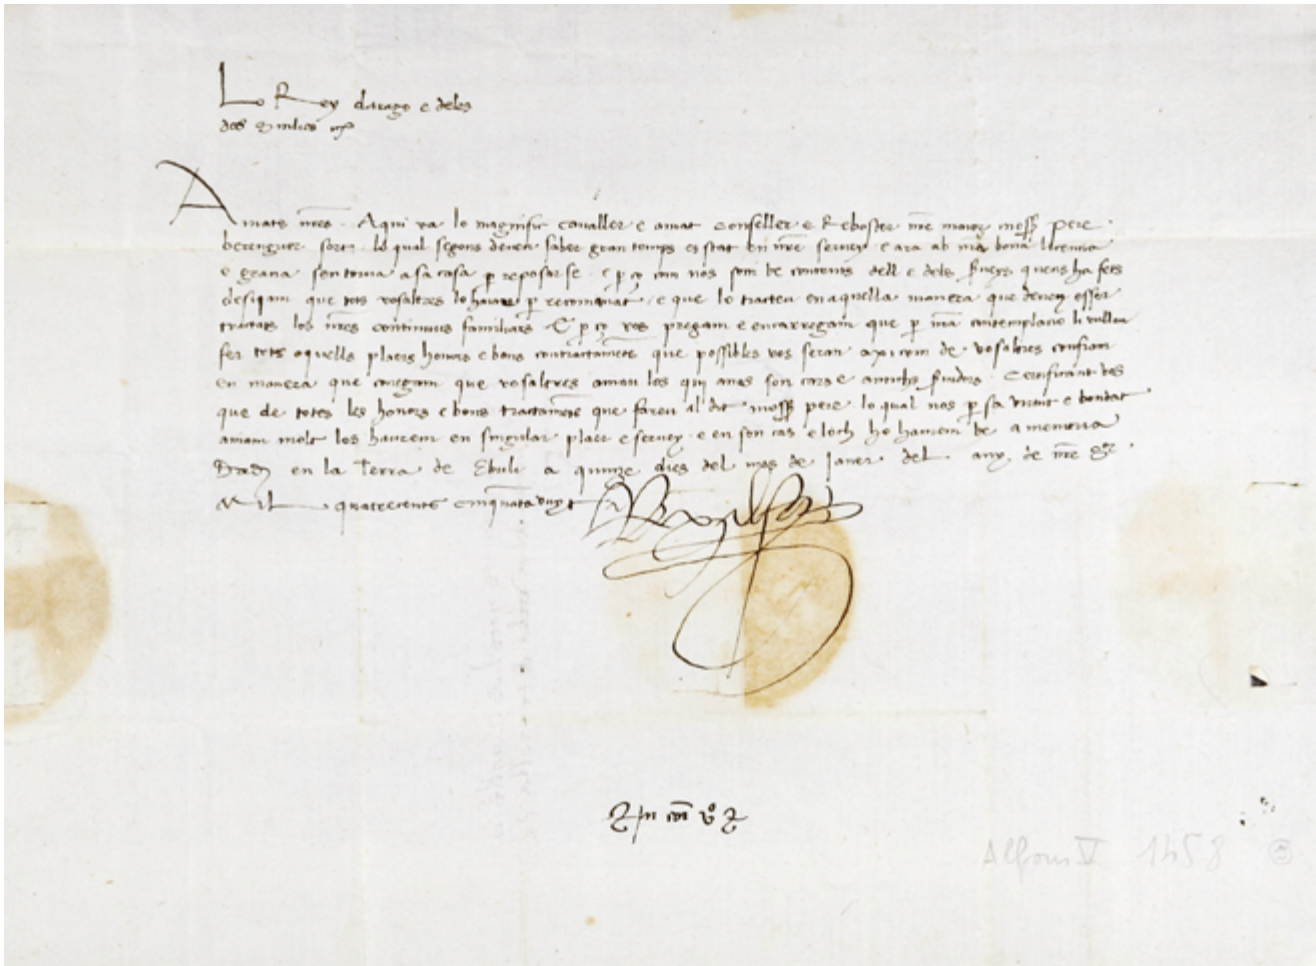 Lo Rey darago e deles
dos Sicilies
Amats nres. Aqui va lo magnific cavaller e amat Conseller e Reboster nre maior moss pere
berenguer lo qual segons deveu saber gran temps es stat en nre servey e ara ab nra bona licencia
e gracia sentorna a sa casa p reposarse e p ço com nos som be contents dell e dels fveys quens ha fets
desijam que tots vosaltres lo haiau p recomenat e que lo tracteu en aquella manera que deven esser
tractats los nres continuus familiars E p ço vos pregam e encarregam que p nra contemplacio li vullau
fer tots aquells plaers honors e bons contractaments que possibles vos seran axi com de vosaltres confiam
en manera que conegam que vosaltres amau los qui anos son cars e antichs fvidors Certificant vos
que de totes les honors e bons tractaments que fareu al dit moss pere lo qual nos p sa virtut e bondat
amam molt los haurem en singular plaer e servey e en son cas e loch ho haurem be a memoria
Dada en la Terra de Ebuli a quinze dies del mes de Janer del any de nre
Mil quatrecents cinquata vuyt
Rex Alfons
Alfons V 1458